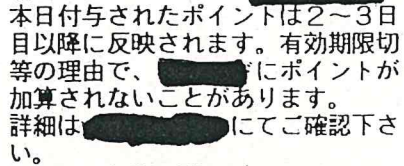 本日付与されたポイントは2～3日
目以降に反映されます。有効期限切
等の理由で、にポイントが
加算されないことがあります。
詳細はにてご確認下さ
い。